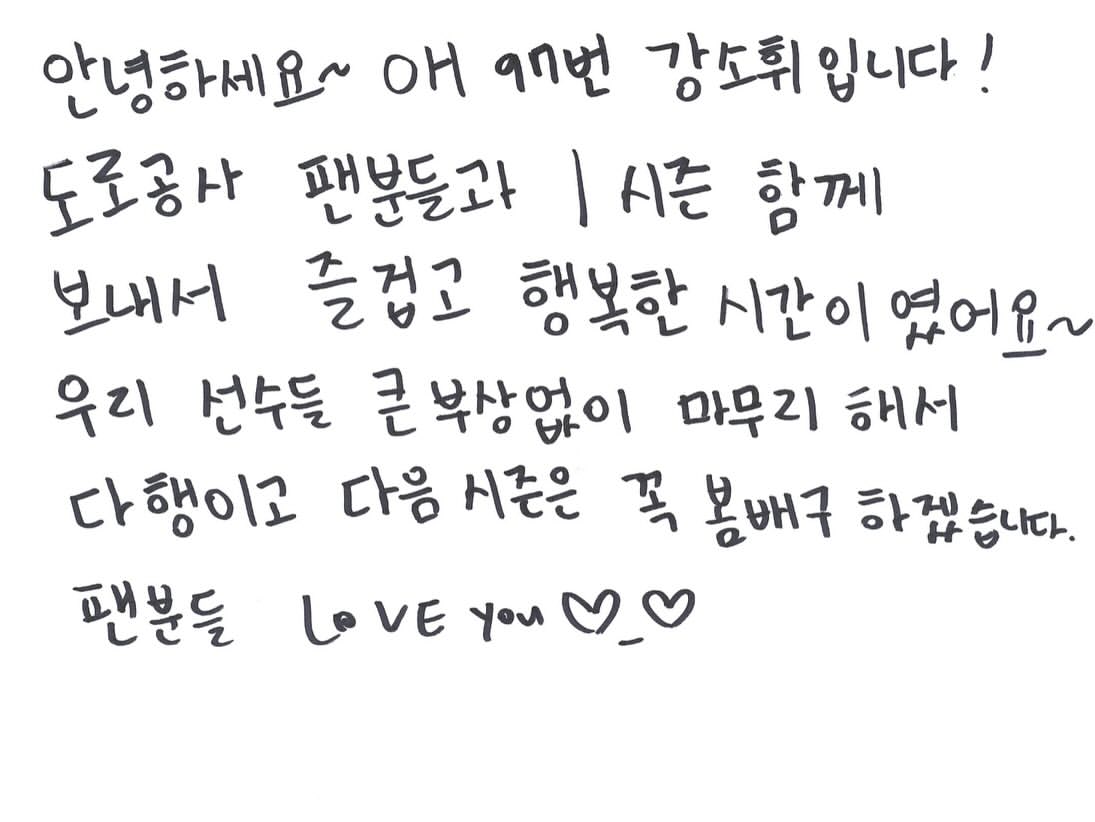 안녕하세요~ OH 97번 강소휘입니다!
도로공사 팬분들과 1시즌 함께
보내서 즐겁고 행복한 시간이였어요~
우리 선수들 큰부상없이 마무리 해서
다행이고 다음 시즌은 꼭 봄배구 하겠습니다.
팬분들 LOVE you♡_♡